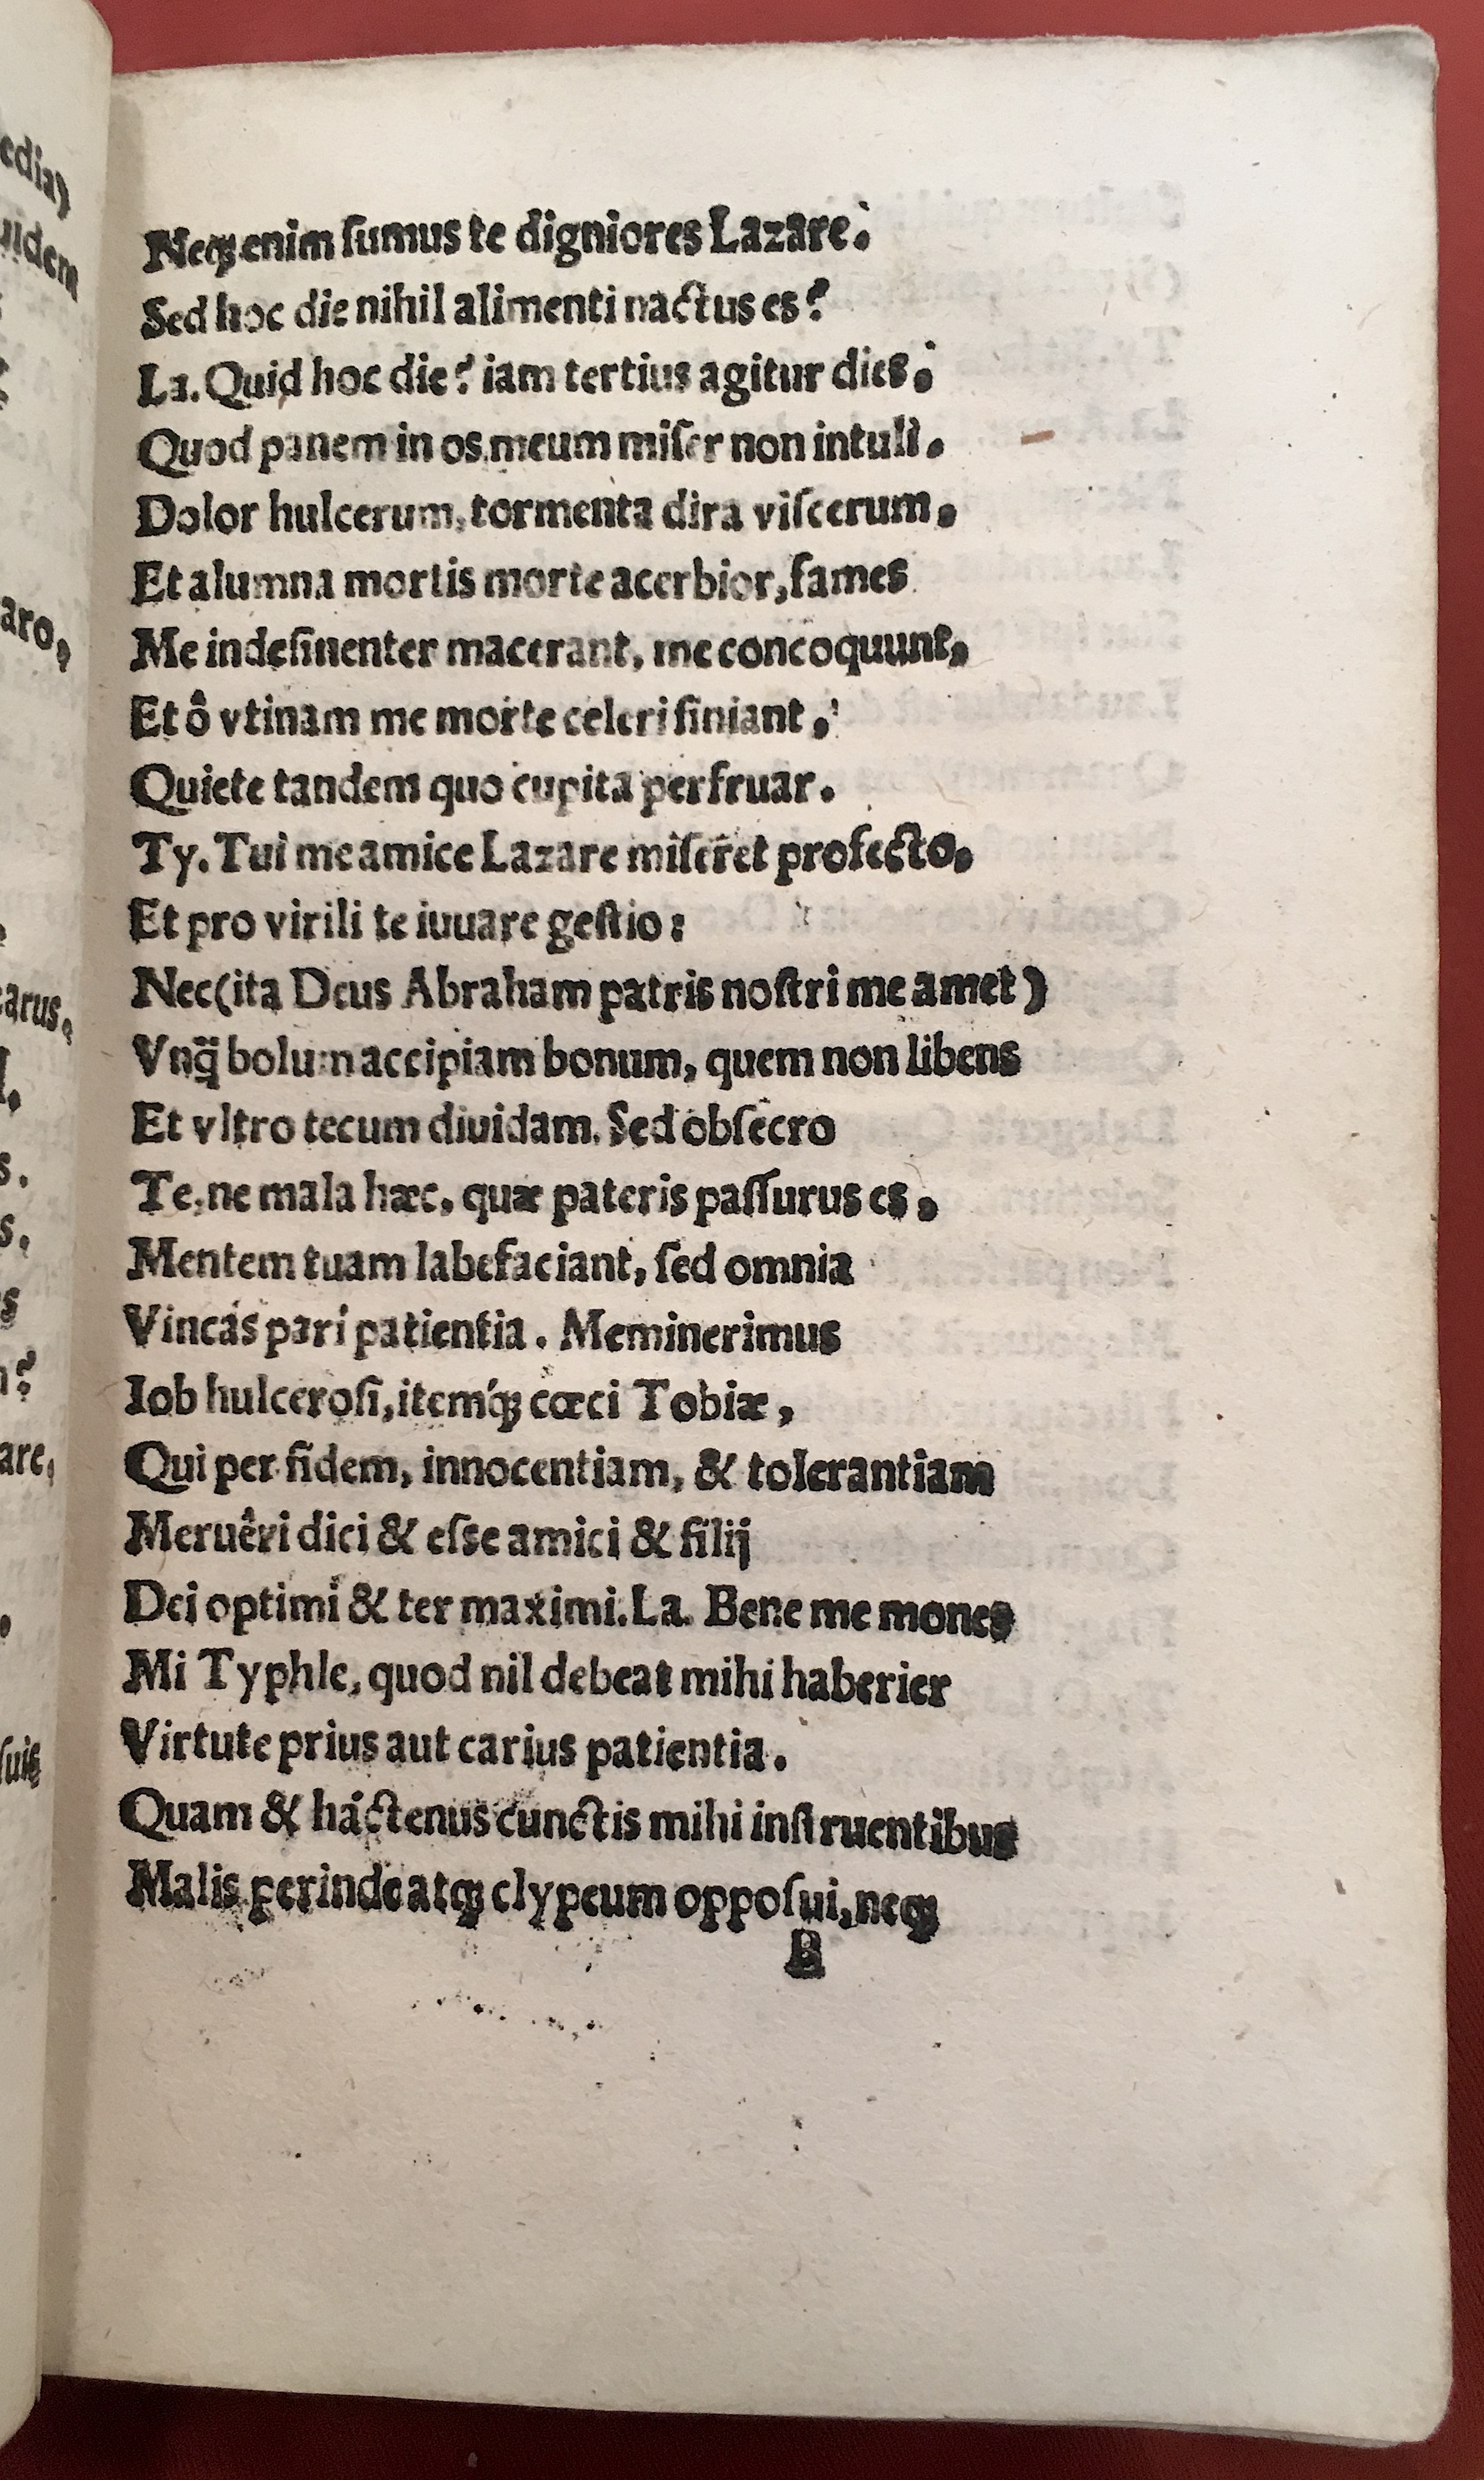 Neqꝫ enim ſumus te digniores Lazare.
Sed hoc die nihil alimenti nactus es?
La. Quid hoc die? iam tertius agitur dies.
Quod panem in os meum miſer non intuli.
Dolor hulcerum, tormenta dira viſcerum,
Et alumna mortis morte acerbior, fames
Me indeſinenter macerant, me concoquunt,
Et ô vtinam me morte celeri finiant,
Quiete tandem quo cupita perfruar.
Ty. Tui me amice Lazare miſeret profecto,
Et pro virili te iuuare geſtio:
Nec (ita Deus Abraham patris noſtri me amet)
Vnq̃ bolum accipiam bonum, quem non libens
Et vltro tecum diuidam. Sed obſecro
Te, ne mala hæc, quæ pateris paſſurus es,
Mentem tuam labefaciant, ſed omnia
Vincás pari patientia. Meminerimus
Iob hulceroſi, itemq́ꝫ cœci Tobiæ,
Qui per fidem, innocentiam, & tolerantiam
Meruêri dici & eſse amici & filij
Dei optimi & ter maximi. La. Bene me mones
Mi Typhle, quod nil debeat mihi haberier
Virtute prius aut carius patientia.
Quam & háctenus cunctis mihi inſtruentibus
Malis perinde atqꝫ clypeum oppoſui, neqꝫ
B
edia)
uidem
aro,
carus.
s.
s.
s
?
are,
ſuis